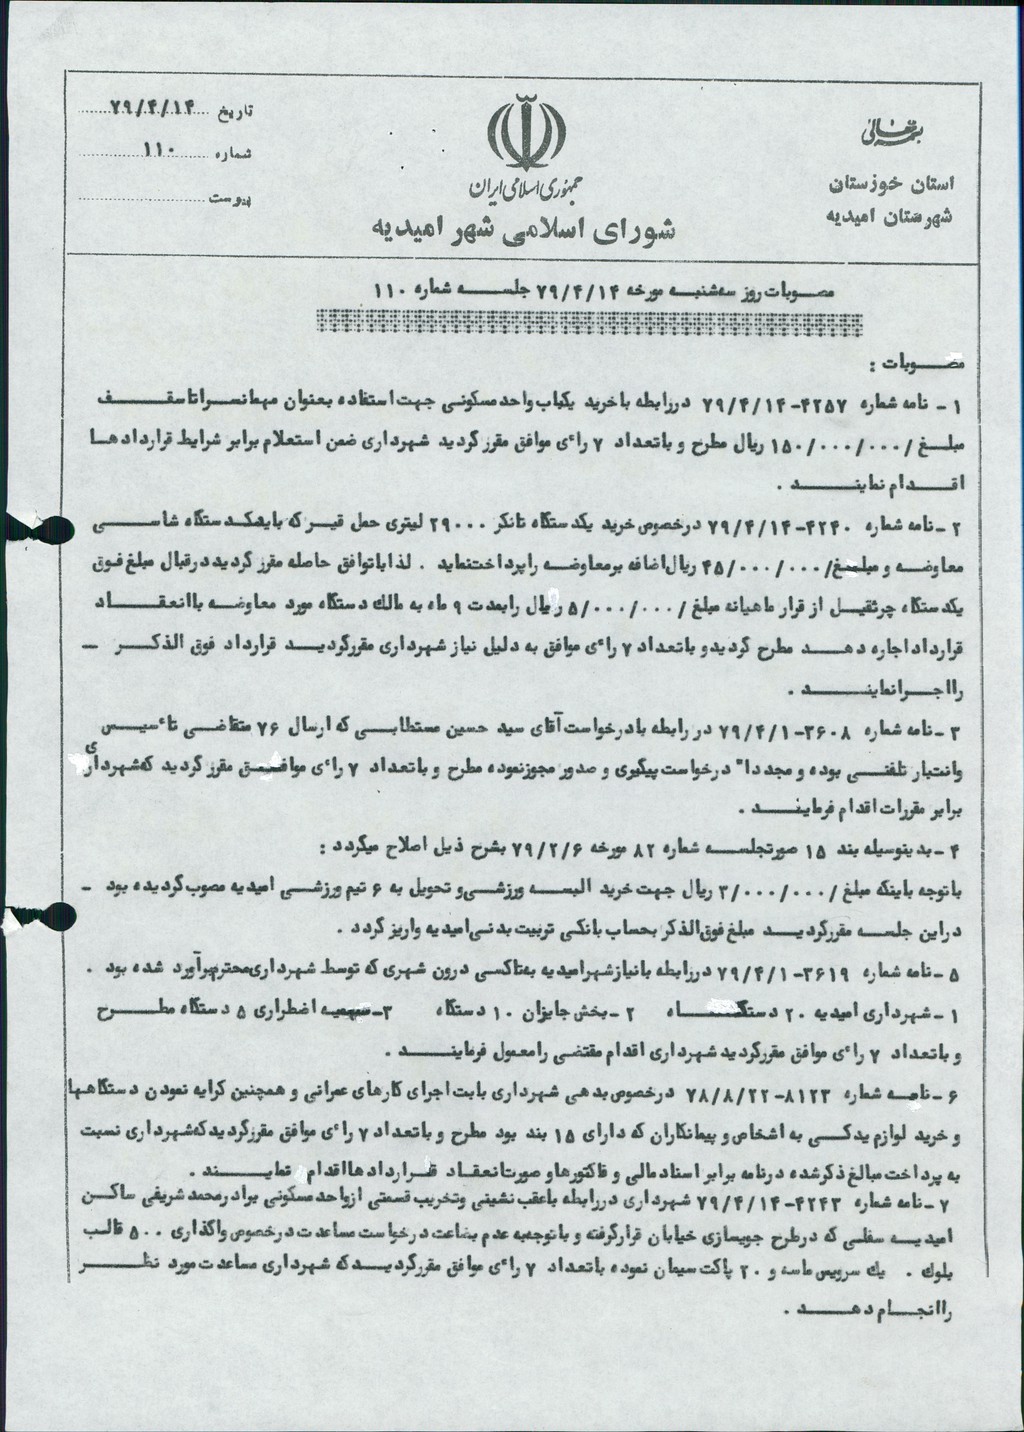 بسمه تعالی
استان خوزستان
شهرستان امیدیه
جمهوری اسلامی ایران
شورای اسلامی شهر امیدیه
تاریخ ۷۹/۴/۱۴
شماره ۱۱۰
پیوست
مصوبات روز سه‌شنبه مورخه ۷۹/۴/۱۴ جلسه شماره ۱۱۰
مصوبات :
۱ - نامه شماره ۴۲۵۷-۷۹/۴/۱۴ دررابطه با خرید یکباب واحد مسکونی جهت استفاده بعنوان مهمانسرا تا سقف
مبلغ /۱۵۰/۰۰۰/۰۰۰ ریال مطرح و باتعداد ۷ راءی موافق مقرر گردید شهرداری ضمن استعلام برابر شرایط قراردادها
اقدام نمایند .
۲ - نامه شماره ۴۲۴۰-۷۹/۴/۱۴ درخصوص خرید یکدستگاه تانکر ۲۹۰۰۰ لیتری حمل قیر که با یکدستگاه شاسی
معاوضه و مبلغ /۴۵/۰۰۰/۰۰۰ ریال اضافه بر معاوضه را پرداخت نماید . لذا با توافق حاصله مقرر گردید درقبال مبلغ فوق
یکدستگاه جرثقیل از قرار ماهیانه مبلغ /۵/۰۰۰/۰۰۰ ریال را بمدت ۹ ماه به مالک دستگاه مورد معاوضه با انعقاد
قرارداد اجاره دهد مطرح گردید و باتعداد ۷ راءی موافق به دلیل نیاز شهرداری مقرر گردید قرارداد فوق الذکر -
را اجرا نمایند .
۳ - نامه شماره ۳۶۰۸-۷۹/۴/۱ در رابطه با درخواست آقای سید حسین مستطابی که ارسال ۷۶ متقاضی تاءسیس
وانتبار تلفنی بوده و مجددا" درخواست پیگیری و صدور مجوز نموده مطرح و باتعداد ۷ راءی موافق مقرر گردید که شهرداری
برابر مقررات اقدام فرمایند .
۴ - بدینوسیله بند ۱۵ صورتجلسه شماره ۸۲ مورخه ۷۹/۲/۶ بشرح ذیل اصلاح میگردد :
با توجه باینکه مبلغ /۳/۰۰۰/۰۰۰ ریال جهت خرید البسه ورزشی و تحویل به ۶ تیم ورزشی امیدیه مصوب گردیده بود -
دراین جلسه مقرر گردید مبلغ فوق الذکر بحساب بانکی تربیت بدنی امیدیه واریز گردد .
۵ - نامه شماره ۳۶۱۹-۷۹/۴/۱ دررابطه با نیاز شهر امیدیه به تاکسی درون شهری که توسط شهرداری محترم برآورد شده بود .
۱ - شهرداری امیدیه ۲۰ دستگاه ۲ - بخش جایزان ۱۰ دستگاه ۳ - سهمیه اضطراری ۵ دستگاه مطرح
و باتعداد ۷ راءی موافق مقرر گردید شهرداری اقدام مقتضی را معمول فرمایند .
۶ - نامه شماره ۸۱۲۳-۷۸/۸/۲۲ درخصوص بدهی شهرداری بابت اجرای کارهای عمرانی و همچنین کرایه نمودن دستگاهها
و خرید لوازم یدکی به اشخاص و پیمانکاران که دارای ۱۵ بند بود مطرح و باتعداد ۷ راءی موافق مقرر گردید که شهرداری نسبت
به پرداخت مبالغ ذکر شده درنامه برابر اسناد مالی و فاکتورها و صورت انعقاد قراردادها اقدام نمایند .
۷ - نامه شماره ۴۲۴۳-۷۹/۴/۱۴ شهرداری دررابطه با عقب نشینی وتخریب قسمتی از واحد مسکونی برادر محمد شریفی ساکن
امیدیه سفلی که درطرح جویسازی خیابان قرار گرفته و با توجه به عدم بضاعت درخواست مساعدت درخصوص واگذاری ۵۰۰ قالب
بلوک . یک سرویس ماسه و ۲۰ پاکت سیمان نموده باتعداد ۷ راءی موافق مقرر گردید که شهرداری مساعدت مورد نظر
را انجام دهد .